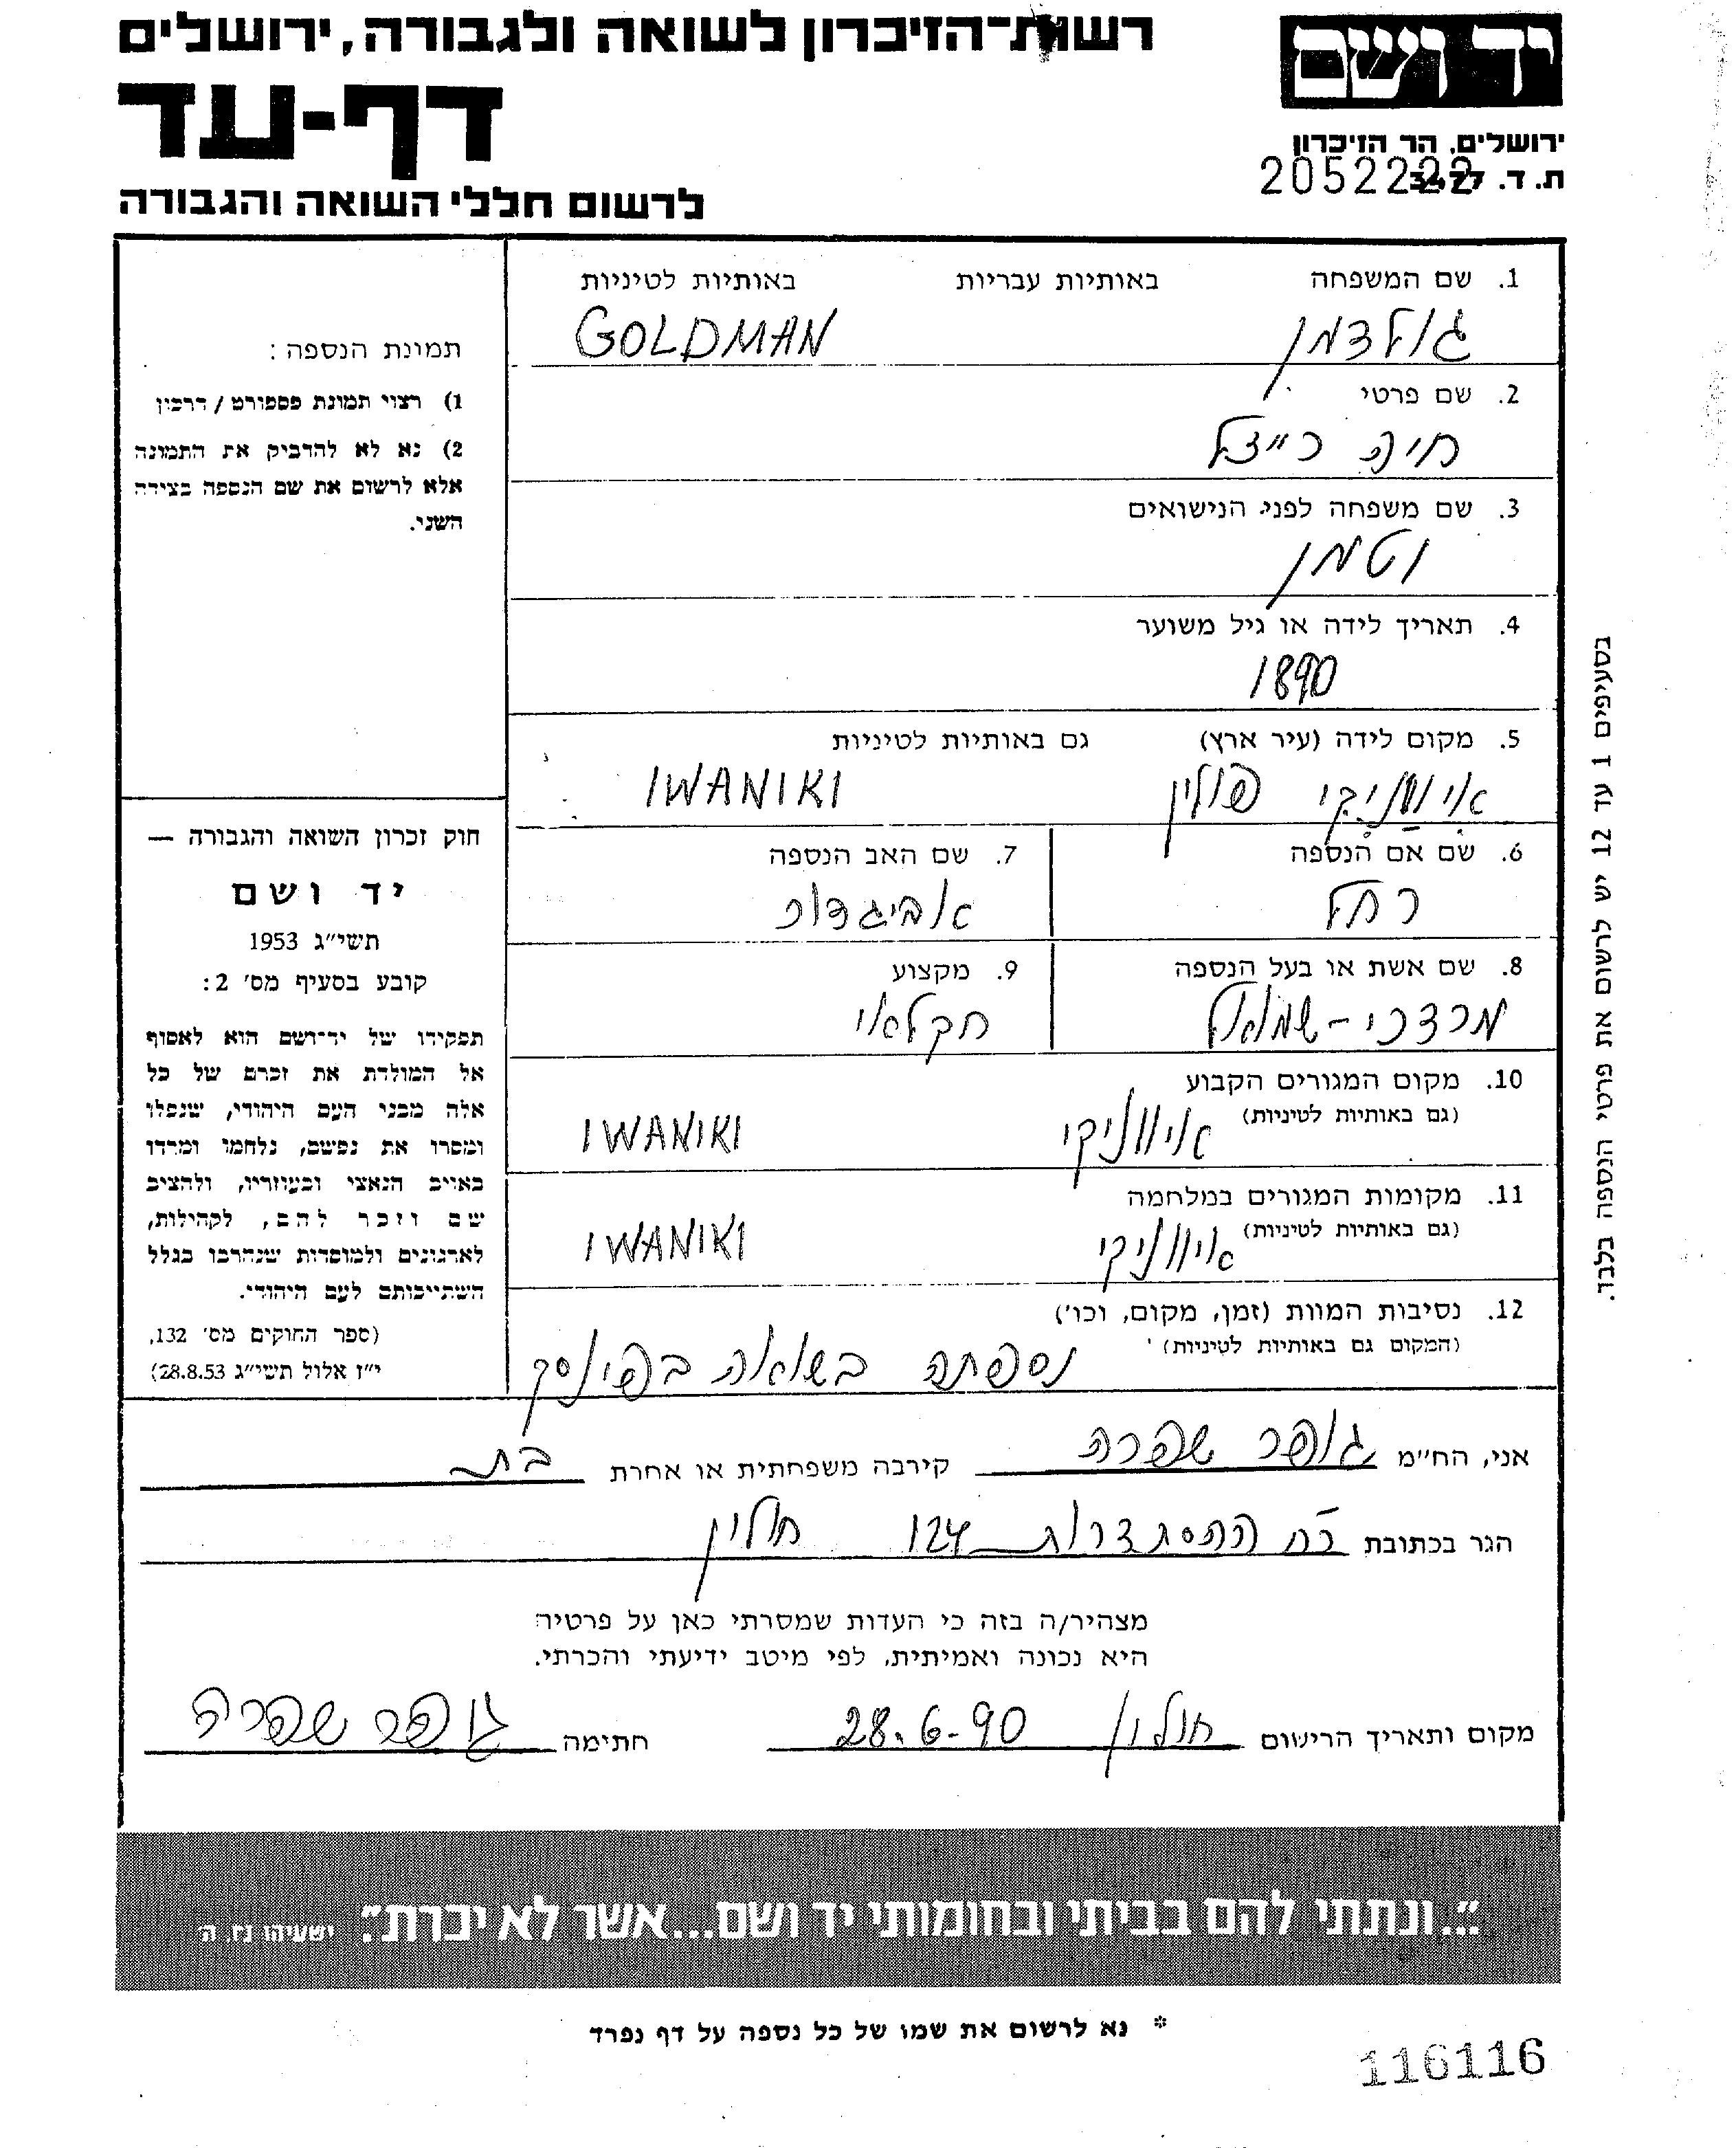 רשות-הזיכרון לשואה ולגבורה, ירושלים
יד ושם
דף-עד
ירושלים, הר הזיכרון
ת. ד.
2052222
לרשום חללי השואה והגבורה
1. שם המשפחה באותיות עבריות באותיות לטיניות
גולדמן GOLDMAN
2. שם פרטי
חיה רייצל
3. שם משפחה לפני הנישואים
וטמן
4. תאריך לידה או גיל משוער
1890
5. מקום לידה (עיר ארץ) גם באותיות לטיניות
איווניקי פולין IWANIKI
6. שם אם הנספה
רחל
7. שם האב הנספה
אביגדור
8. שם אשת או בעל הנספה
מרדכי-שמואל
9. מקצוע
חקלאי
10. מקום המגורים הקבוע
(גם באותיות לטיניות) איווניקי IWANIKI
11. מקומות המגורים במלחמה
(גם באותיות לטיניות) איווניקי IWANIKI
12. נסיבות המוות (זמן, מקום, וכו')
(המקום גם באותיות לטיניות) נספתה בשואה בפינסק
תמונת הנספה:
1) רצוי תמונת פספורט / דרכון
2) נא לא להדביק את התמונה
אלא לרשום את שם הנספה בצידה
השני.
חוק זכרון השואה והגבורה —
יד ושם
תשי"ג 1953
קובע בסעיף מס' 2:
תפקידו של יד-ושם הוא לאסוף
אל המולדת את זכרם של כל
אלה מבני העם היהודי, שנפלו
ומסרו את נפשם, נלחמו ומרדו
באויב הנאצי ובעוזריו, ולהציב
שם וזכר להם, לקהילות,
לארגונים ולמוסדות שנחרבו בגלל
השתייכותם לעם היהודי.
(ספר החוקים מס' 132,
י"ז אלול תשי"ג 28.8.53)
בסעיפים 1 עד 12 יש לרשום את פרטי הנספה בלבד.
אני, הח"מ גופר שפרה קירבה משפחתית או אחרת בת
הגר בכתובת רח ההסתדרות 124 חולון
מצהיר/ה בזה כי העדות שמסרתי כאן על פרטיה
היא נכונה ואמיתית, לפי מיטב ידיעתי והכרתי.
מקום ותאריך הרישום חולון 28.6.90 חתימה גופר שפרה
"...ונתתי להם בביתי ובחומותי יד ושם...אשר לא יכרת." ישעיהו נו, ה
* נא לרשום את שמו של כל נספה על דף נפרד
116116